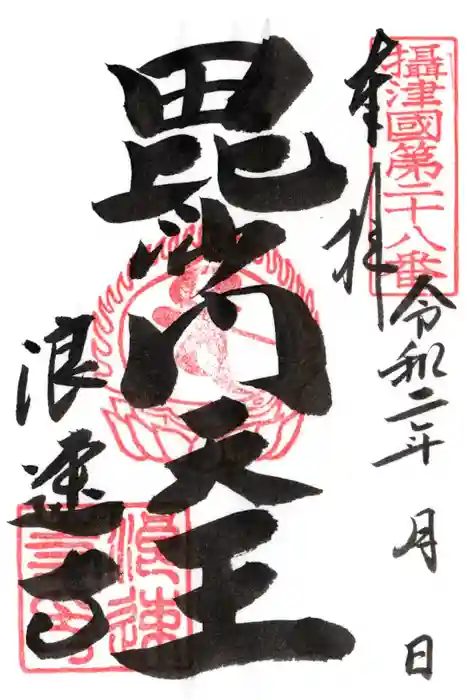 攝津國第二十八番
奉拝
令和二年 月 日
毘沙門天王
浪速寺